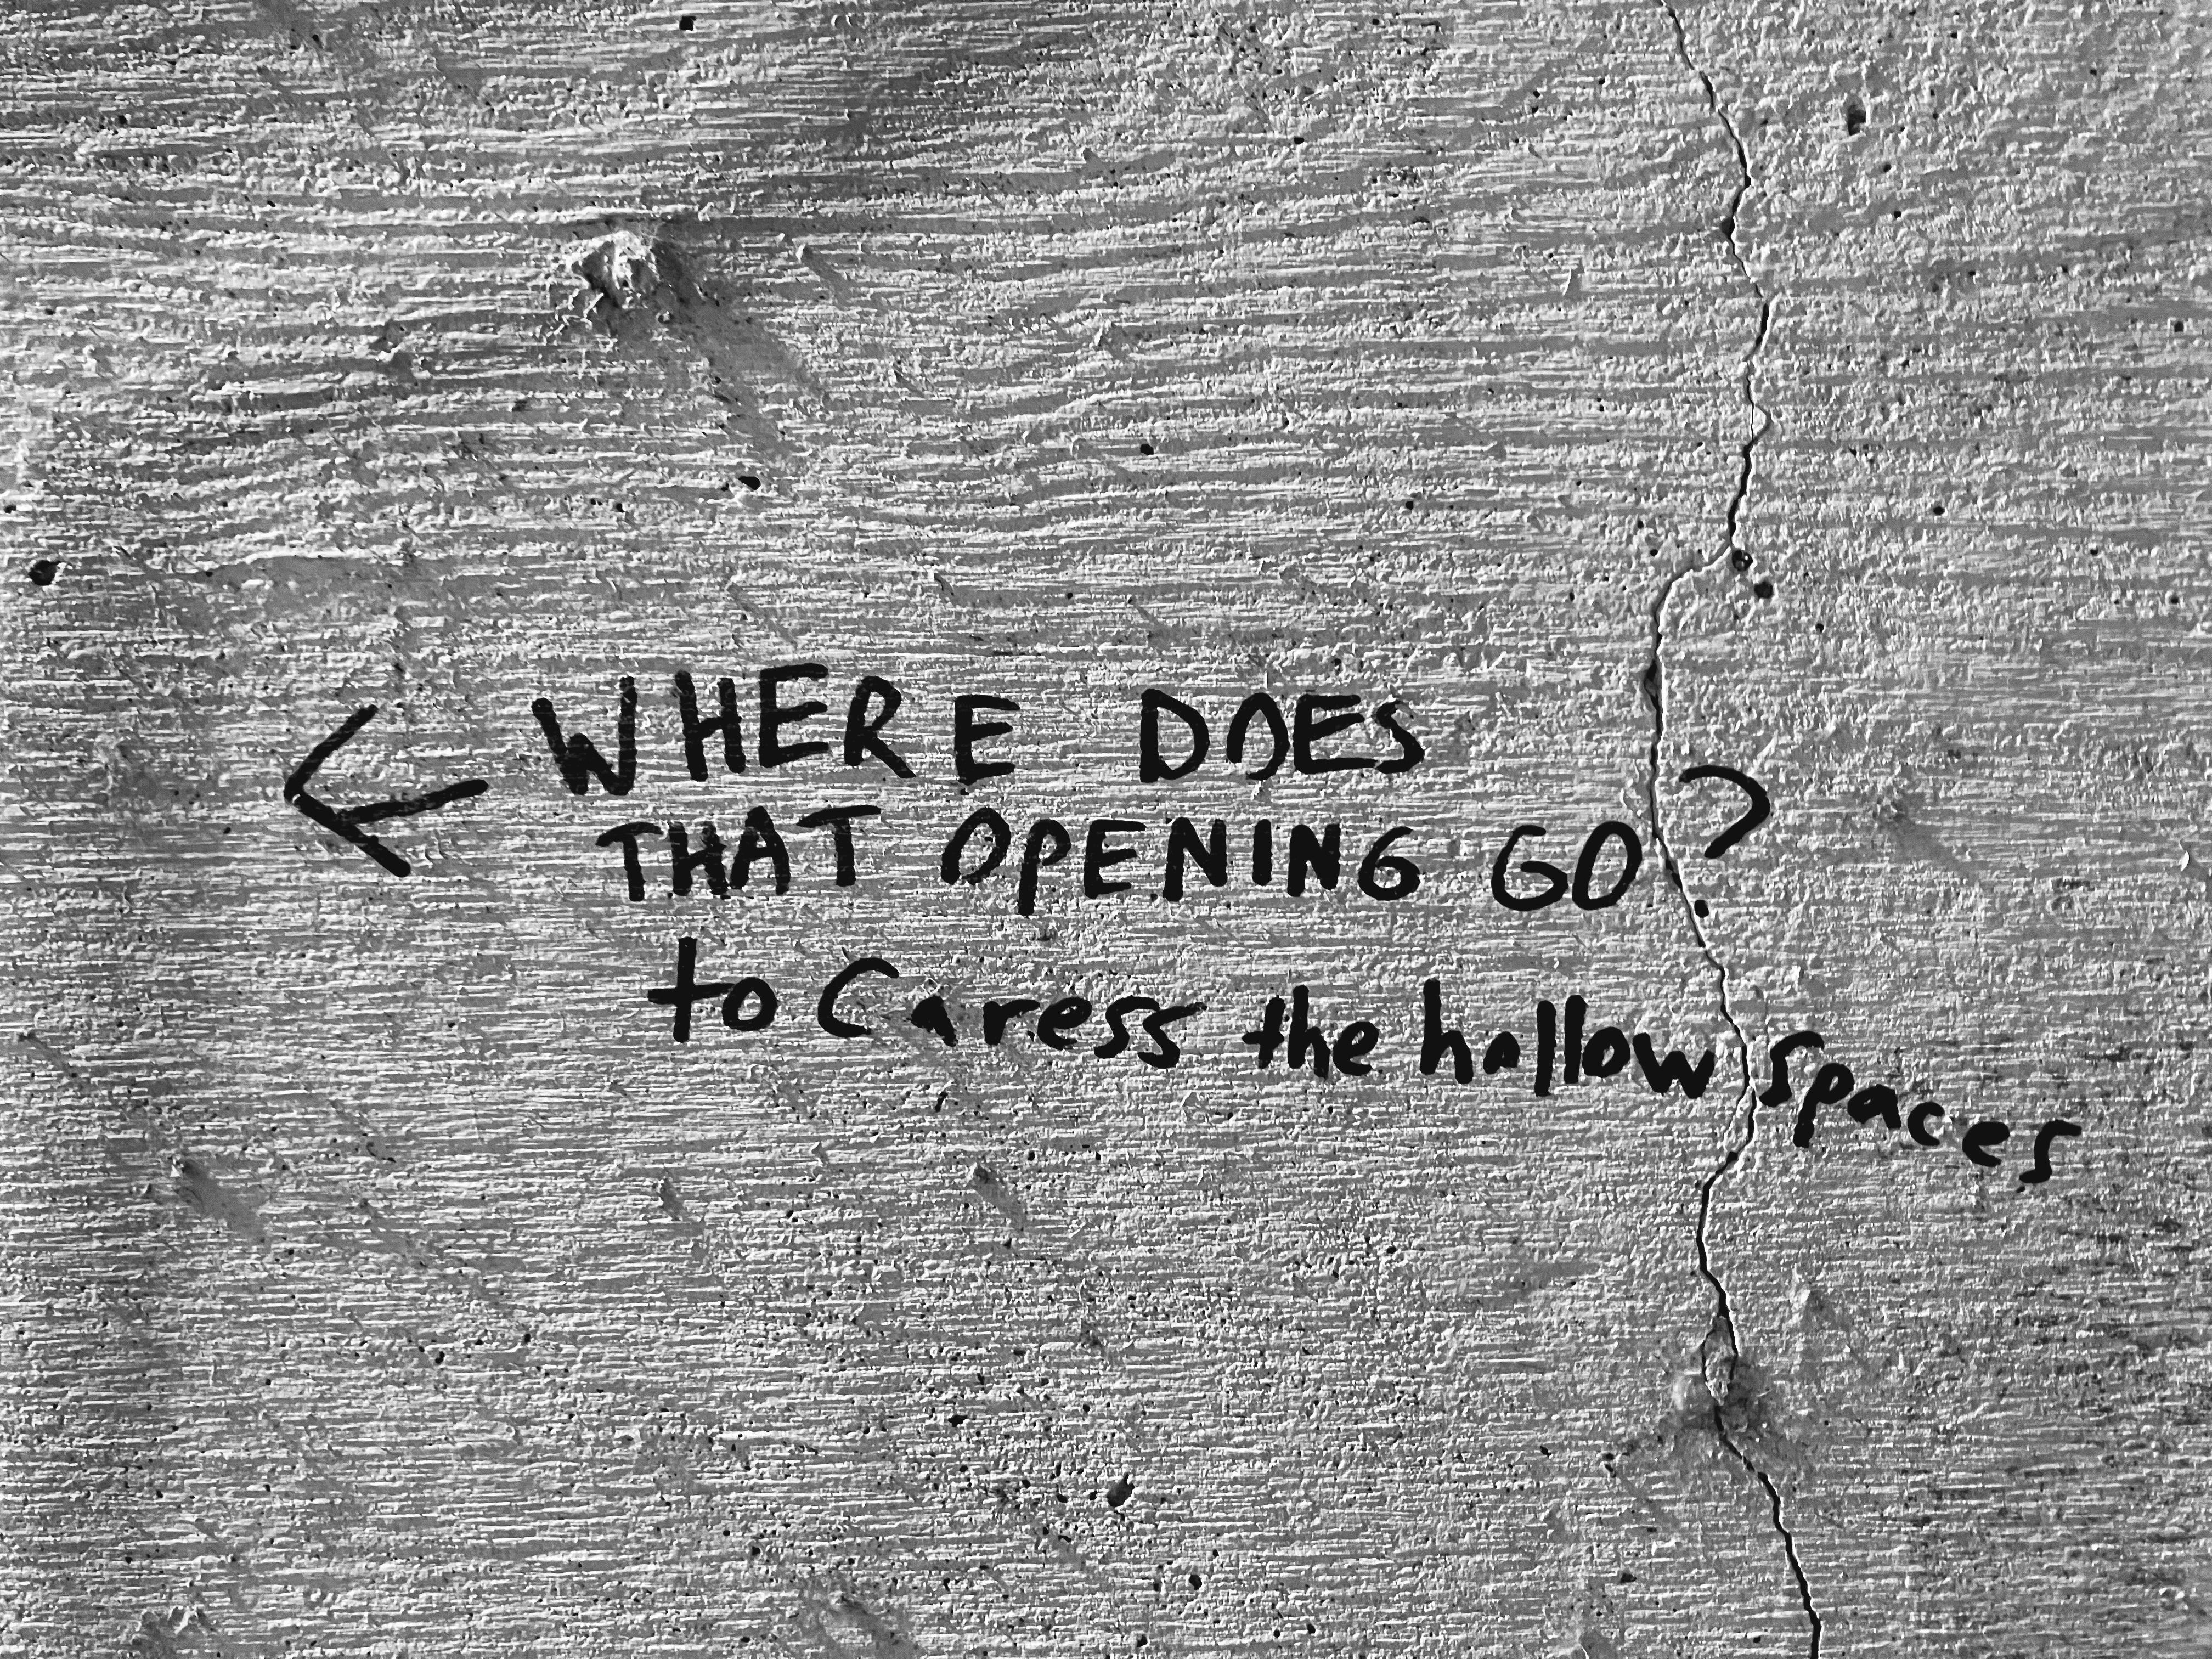 ← WHERE DOES
THAT OPENING GO?
to Caress the hollow spaces